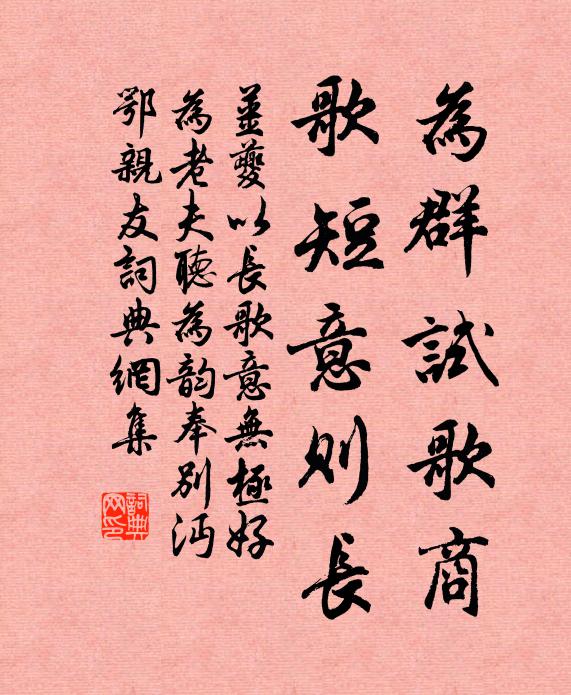 為群試歌商
歌短意則長
姜夔以長歌意無極好
為老夫聽為韵奉別沔
鄂親友詞典網集
詞典
网印